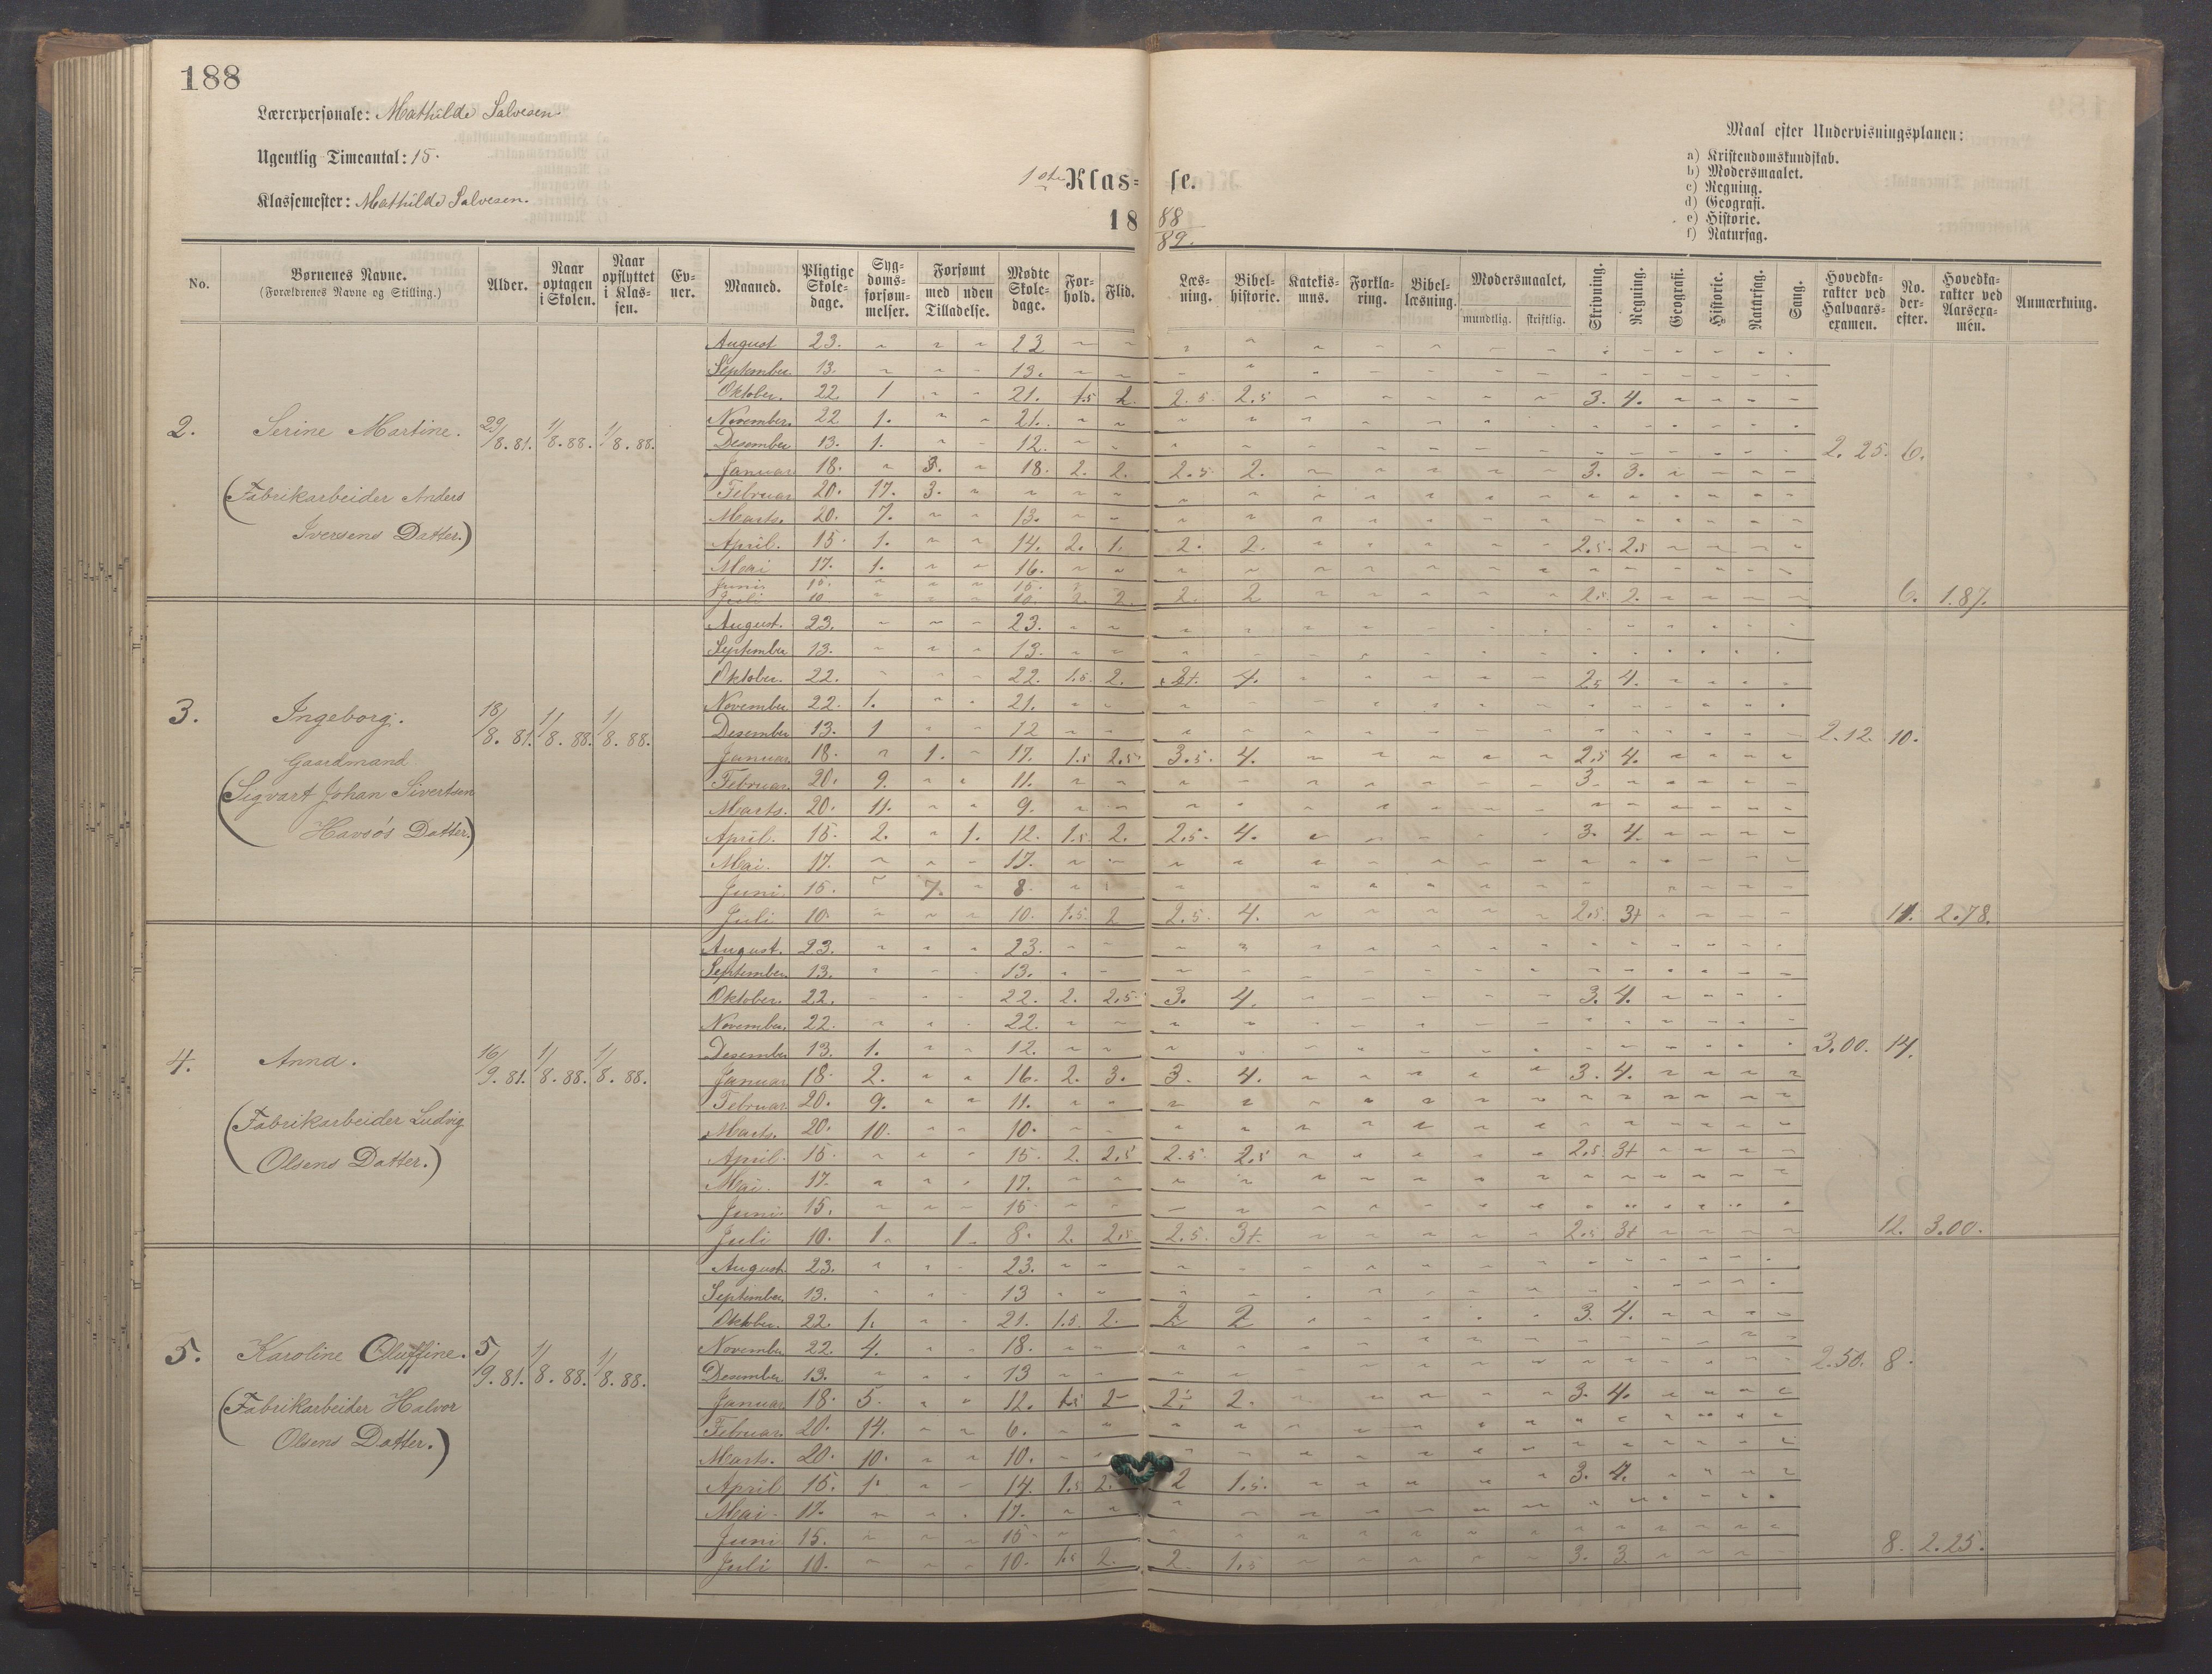 188
Lærerpersonale: Mathilde Salvesen.
Ugentlig Timeantal: 15.
Klassemester: Mathilde Salvesen.
1ste Klasse.
1888/89.
Maal efter Undervisningsplanen:
a) Kristendomskundskab.
b) Modersmaalet.
c) Regning.
d) Geografi.
e) Historie.
f) Naturfag.
No. Børnenes Navne. (Forældrenes Navne og Stilling.) Alder. Naar optagen i Skolen. Naar opflyttet i Klassen. Evner. Maaned. Pligtige Skoledage. Sygdomsforsømmelser. Forsømt med uden Tilladelse. Mødte Skoledage. Forhold. Flid. Læsning. Bibelhistorie. Katekismus. Forklaring. Bibellæsning. Modersmaalet, mundtlig. skriftlig. Skrivning. Regning. Geografi. Historie. Naturfag. Sang. Hovedkarakter ved Halvaarsexamen. No. derefter. Hovedkarakter ved Aarsexamen. Anmærkning.
2. Serine Martine. 29/8. 81. 1/8. 88. 1/8. 88. 2.25. 6.
(Fabrikarbeider Anders
Iversens Datter.)
August 23. 23
September. 13. 13.
Oktober. 22 1 21. 1.5 2. 2.5. 2.5 3. 4.
November. 22 1. 21.
Desember 13. 1. 12.
Januar 18. 3. 18. 2. 2. 2.5 2. 3. 3.
Februar 20. 17. 3.
Marts. 20. 7. 13.
April. 15 1. 14. 2. 1. 2. 2. 2.5. 2.5
Mai 17. 1. 16.
Juni 15. 15.
Juli 10 10. 2. 2. 2. 2 2.5. 2. 6. 1.87.
3. Ingeborg. 18/8. 81. 1/8. 88. 1/8. 88. 2.12. 10.
Gaardmand
(Sigvart Johan Sivertsen
Havsøs Datter.)
August. 23. 23.
September 13. 13.
Oktober. 22. 22. 1.5. 2. 3+. 4. 2.5 4.
November 22. 1. 21.
Desember 13. 1 12
Januar 18. 1. 17. 1.5 2.5. 3.5. 4. 2.5 4.
Februar 20. 9. 11. 3.
Marts. 20. 11. 9.
April. 15 2. 1. 12. 1.5. 2. 2.5. 4. 3. 4.
Mai. 17. 17.
Juni. 15. 7. 8.
Juli 10. 10. 1.5 2 2.5. 4. 2.5. 3+ 11. 2.78.
4. Anna. 16/9. 81. 1/8. 88. 1/8. 88. 3.00. 14.
(Fabrikarbeider Ludvig
Olsens Datter.)
August. 23. 23.
September. 13. 13.
Oktober. 22. 22. 2. 2.5 3. 4. 3. 4.
November. 22. 22.
Desember 13. 1. 12.
Januar 18. 2. 16. 2. 3. 3. 4. 3. 4.
Februar. 20. 9. 11.
Marts. 20. 10. 10.
April. 15. 15. 2. 2.5 2.5 2.5 2.5. 3+
Mai. 17. 17.
Juni 15. 15
Juli 10. 1. 1. 8. 2. 2.5. 2.5. 3+. 2.5 3+ 12. 3.00.
5. Karoline Oluffine. 5/9. 81. 1/8. 88. 1/8. 88. 2.50. 8.
(Fabrikarbeider Halvor
Olsens Datter.)
August. 23. 23.
September. 13. 13
Oktober. 22. 1. 21. 1.5. 2. 2 2 3. 4.
November 22. 4. 18.
Desember 13. 13
Januar 18. 5. 12. 1.5 2 2. 2. 3. 4.
Februar. 20. 14. 6.
Marts. 20. 10. 10.
April 15. 1. 14. 1.5 2. 2 1.5. 3. 4.
Mai. 17. 17.
Juni 15. 15
Juli 10. 10. 1.5 2. 2. 1.5 3. 3 8. 2.25.